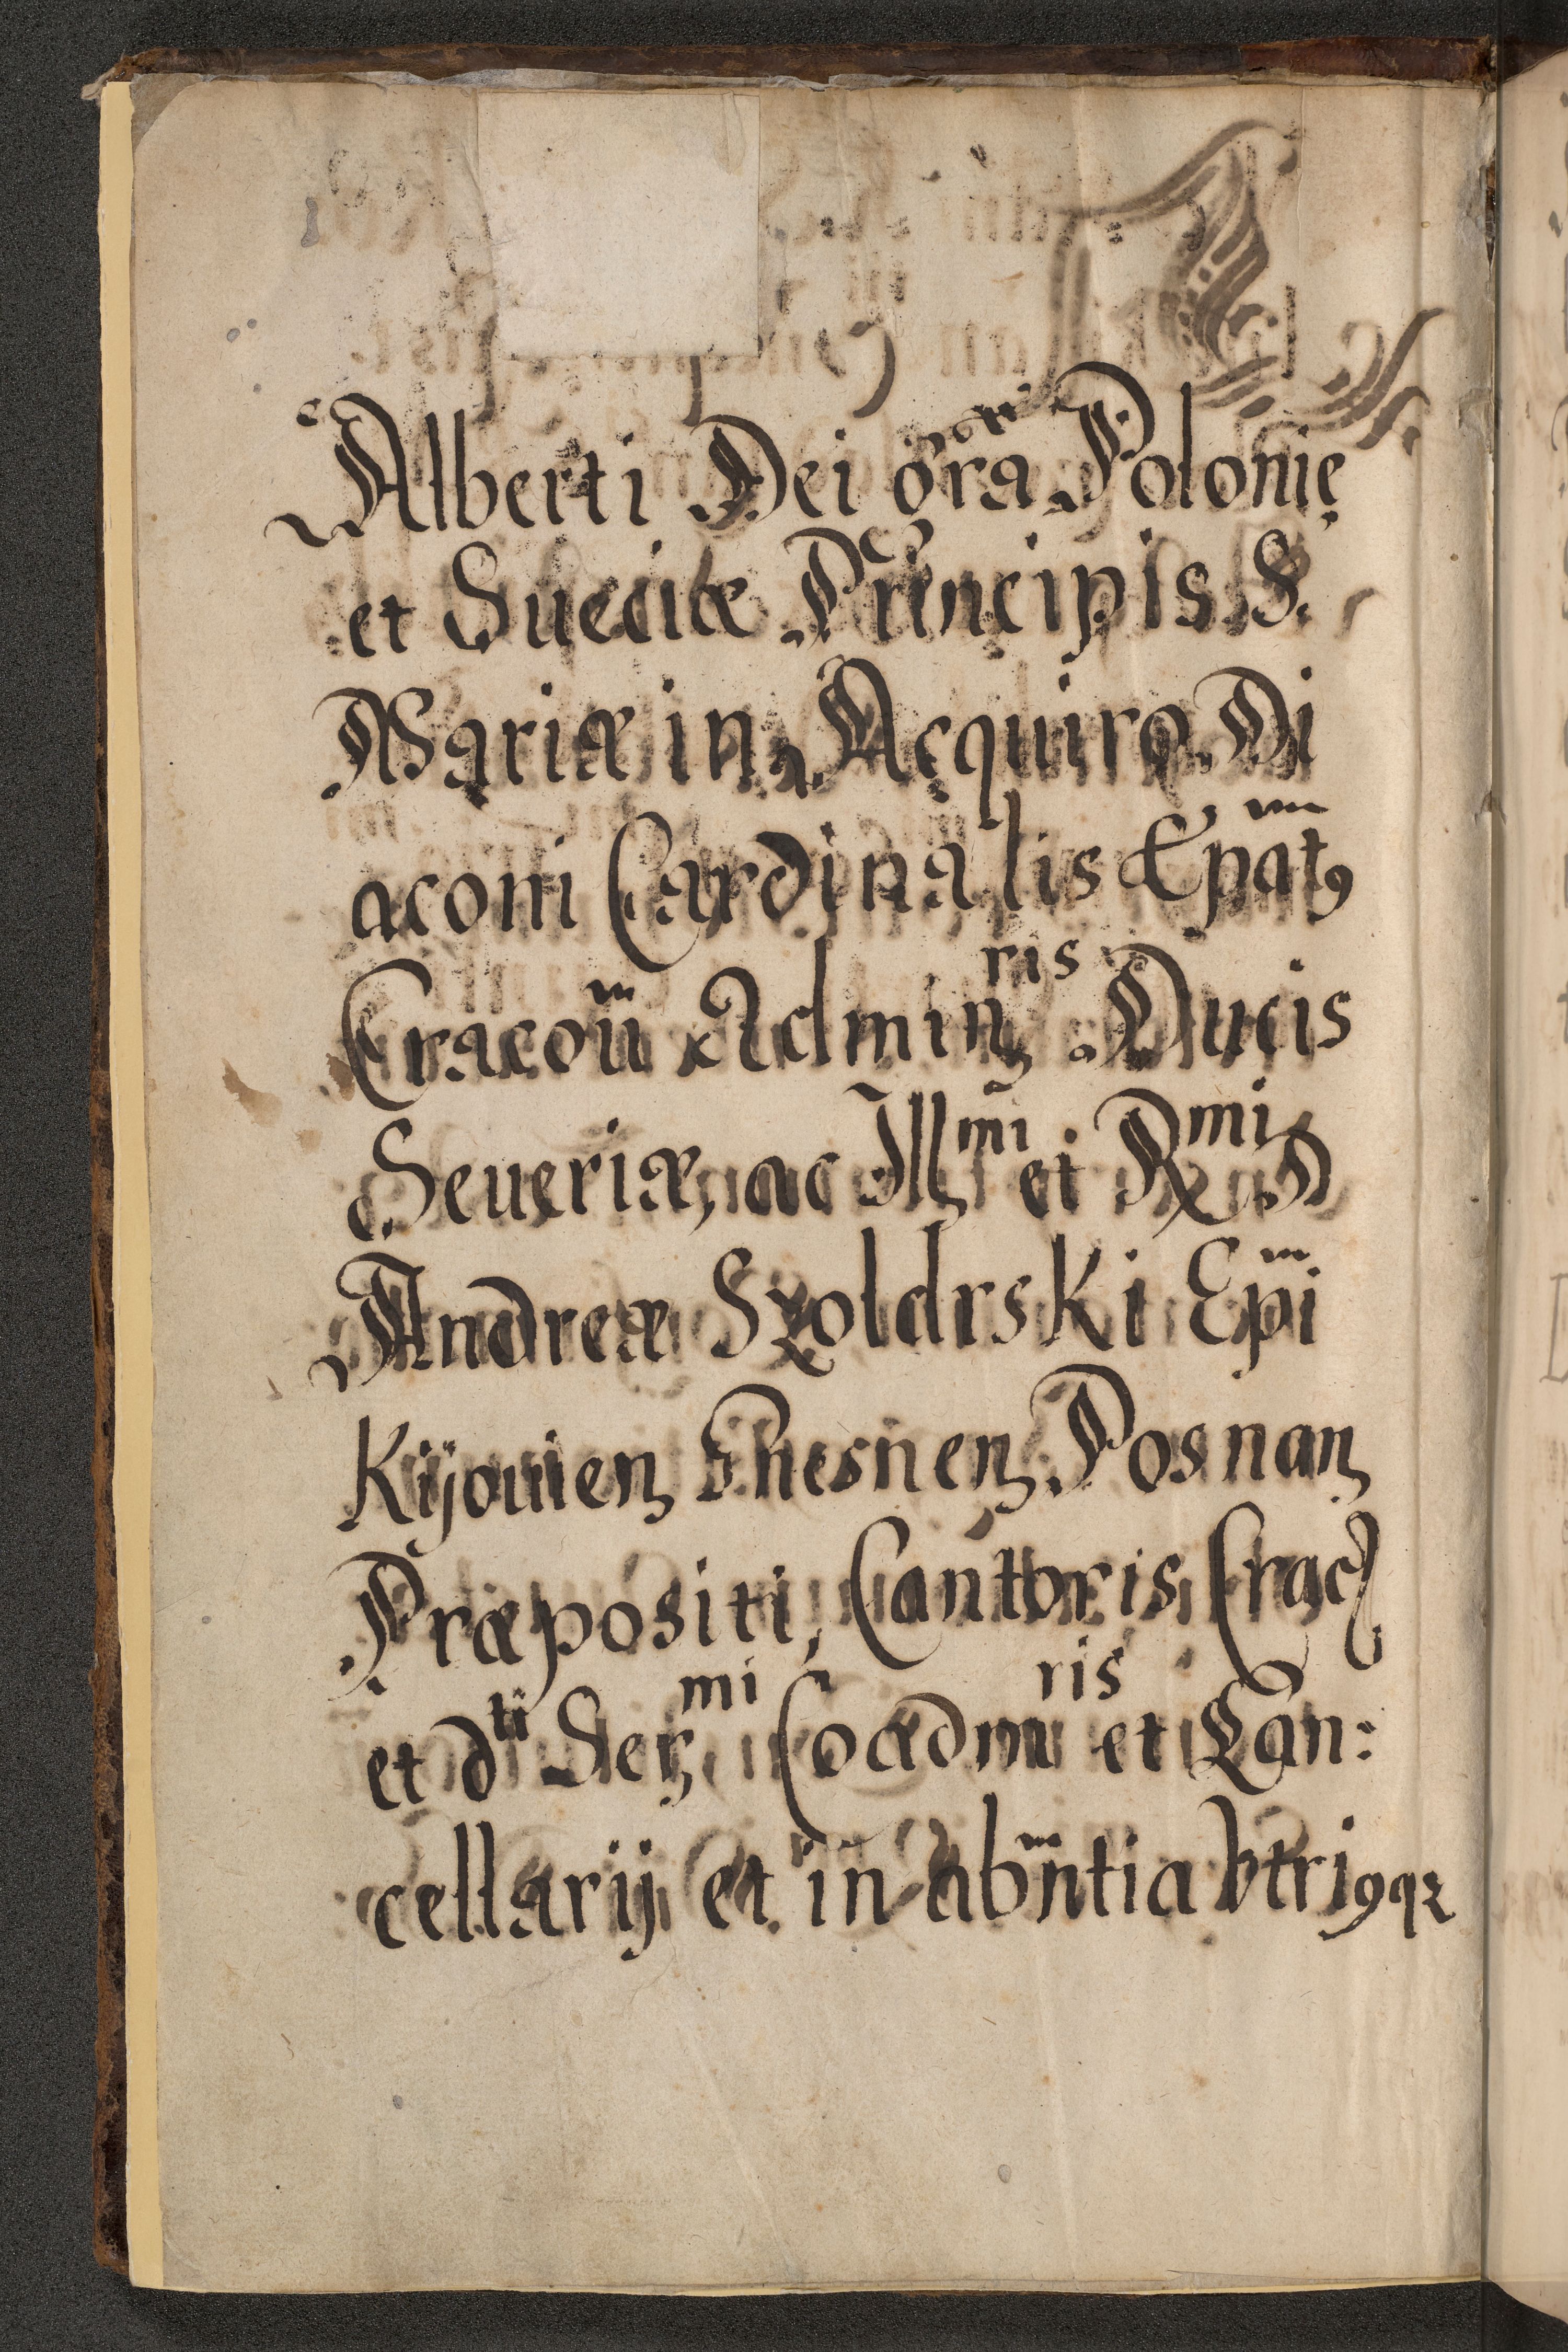 Alberti Dei gr̃a Polonię
et Sueciæ Principis S.
Mariæ in Acquiro Di
aconi Cardinalis Ep̃atꝯ
Cracoũ Adminꝫ ris Ducis
Seueriæ, ac Illmi et Rmi D
Andreæ Szoldrski Ep̃i
Kijouienꝫ Gnesnenꝫ Posnanꝫ
Præpositi, Cantoris Crac
et dti Serꝫ mi Coadmi ris et Can:
cellarij et in abñtia vtriꝯqꝫ